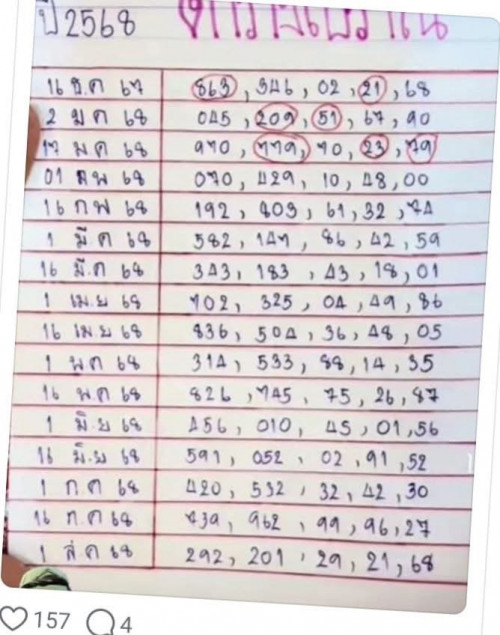 ปี 2568 ตารางโบราณ
16 ธ.ค 67 863, 346, 02, 21, 68
2 มค 68 045, 209, 51, 67, 90
17 มค 68 970, 779, 70, 23, 79
01 กพ 68 070, 429, 10, 48, 00
16 กพ 68 192, 403, 61, 32, 74
1 มีค 68 582, 147, 86, 42, 59
16 มี.ค 68 343, 183, 43, 18, 01
1 เม.ย 68 702, 325, 04, 49, 86
16 เม.ย 68 836, 504, 36, 48, 05
1 พ.ค 68 314, 533, 88, 14, 35
16 พ.ค 68 826, 745, 75, 26, 87
1 มิ.ย 68 456, 010, 45, 01, 56
16 มิ.ย 68 591, 052, 02, 91, 52
1 ก.ค 68 420, 532, 32, 42, 30
16 ก.ค 68 739, 962, 99, 96, 27
1 ส.ค 68 292, 201, 29, 21, 68
157 4